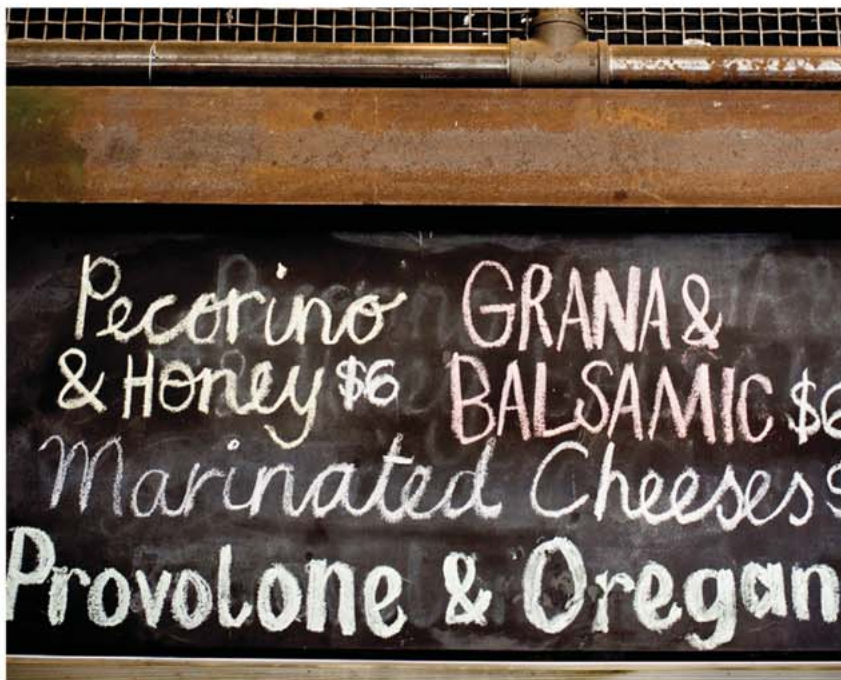 Pecorino
& Honey $6
GRANA &
BALSAMIC $6
Marinated Cheeses $
Provolone & Oregan